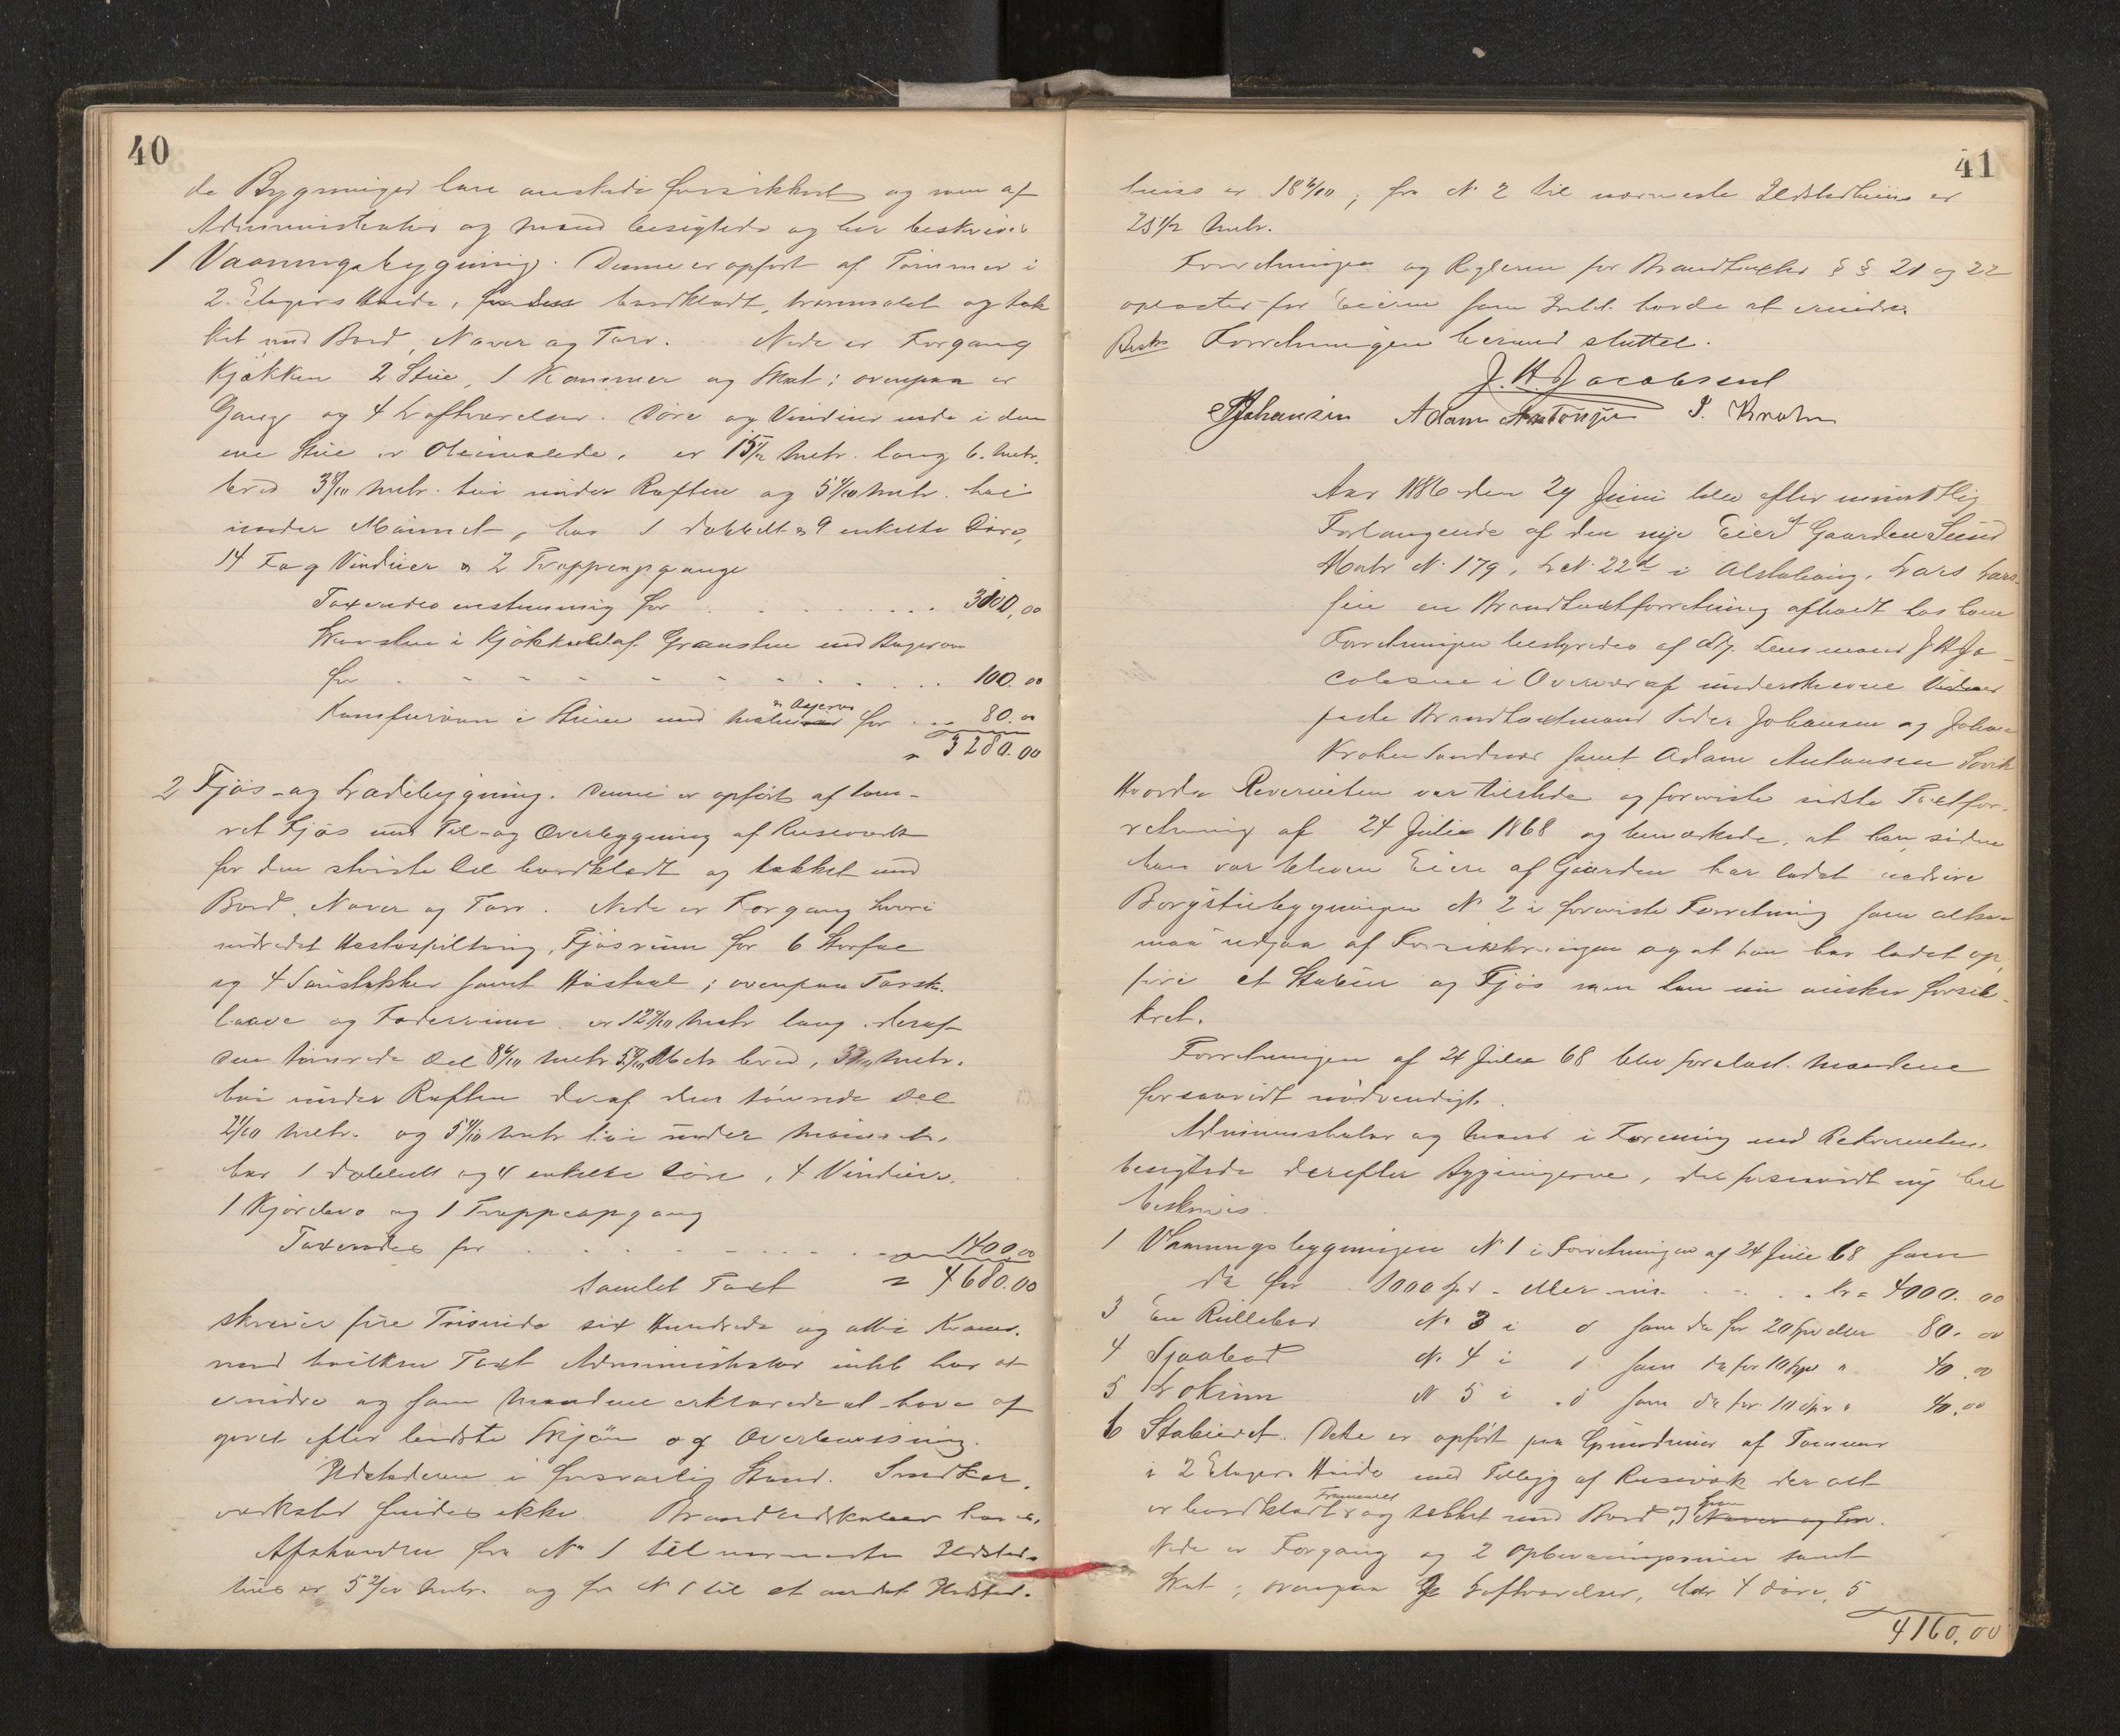 40
de Bygninger lare ønskede forsikkret og som af
Administrator og Mænd besigtedes og her beskrives
1 Vaaningsbygning. Denne er opført af Tømmer i
2. Etagers Høide, bordklædt, og tæk
ket med Bord, Næver og Torv. Nede er Forgang
Kjøkken 2 Stue, 1 Kammer og Skat; ovenpaa er
Gang og 4 Loftværelser. Døre og Vinduer nede i den
ene Stue er Oliemalede, er 15 1/2 Metr. lang 6. Metr.
bred 3 8/10 Metr. høi under Raften og 5 6/10 Metr. høi
under Mønnet, har 1 dobbelt & 9 enkelte Døre,
14 Fag Vinduer & 2 Trappeopgange
Taxeredes enstemmig for 3100,00
Skorsten i Kjøkkenet af Graasten med Bagerovn
for 100.00
Kamfurovn i Stuen med for 80.00
" 3280.00
2 Fjøs- og Ladebygning. Denne er opført af tøm-
ret Fjøs med Til- og Overbygning af Reisværk
for den største Del bordklædt og tækket med
Bord, Næver og Torv. Nede er Forgang hvori
indredet Hestespiltoug, Fjøsrum for 6 Storfæ
og 4 samt Høstaal; ovenpaa Tærsk-
laave og Foderrum. er 12 Metr lang, deraf
den tømrede Del 8 6/10 Metr Metr bred, Metr.
høi under Raften deraf den tømrede Del
2 1/10 Metr. og 5 Metr høi under Mønnet.
har 1 dobbelt og 4 enkelte Døre, 4 Vinduer,
1 Kjørebro og 1 Trappeopgang
Taxeredes for 1400.00
Samlet Taxt = 4680.00
skriver fire Tusinde sex Hundrede og otti Kroner,
mod hvilken Taxt Administrator intet har at
erindre og som Mændene erklærede at have af
givet efter bedste Skjøn og Overbevisning.
Ildstederne i forsvarlig Stand. Snedker
værksted findes ikke. Brandredskaber haves.
Afstanden fra No 1 til nærmeste Ildsteds-
huus er 5 Metr. og fra N 1 til et andet Ildsted-
41
huus er 18 6/10; fra N 2 til nærmeste Ildstedhuus er
25 1/2 Metr.
Forretningen og Reglerne for Brandtaxter § § 21 og 22
oplæstes for Eieren som Intet havde at erindre
Forretningen hermed sluttet.
J. H. Jacobsen
PJohansen Adam Antonsen J. Krohn
Aar 1886 den 29 Juni blev efter mundtlig
Forlangende af den nye Eier af Gaarden Sund
Matr N. 179, L. N. 22d i Alstahaug, Lars Lars-
sen en Brandtaxtforretning afholdt hos ham
Forretningen bestyredes af Lensmand J H Ja-
cobsen i Overvær af underskrevne Vidner
faste Brandtaxtmænd Peder Johansen og Johan
Krohn Sandnes samt Adam Antonsen Sørvik
Hvorda Reverenten var tilstede og foreviste sidste Taxtfor-
retning af 24 Julie 1868 og bemærkede, at han, siden
han var bleven Eier af Gaarden har ladet nedrive
Borgstuebygningen N 2 i foreviste Forretning som altsaa
maa udgaa af Forsikkringen og at han har ladet op-
føre et Stabur og Fjøs som han nu ønsker forsik-
kret.
Forretningen af 24 Julie 68 blev forelæst Mændene
forsaavidt nødvendigt.
Administrator og Mænd i Forening med Rekvirenten
besigtede derefter Bygningerne, der forsaavidt ny her
beskrives.
1 Vaaningsbygningen N 1 i Forretningen af 24 Julie 68 som
da for 1000 Spd. eller nu Kr = 4000.00
3 En Rullebod N. 3 i d som da for 20 Spd eller 80.00
4 Sjaabod N. 4 i d som da for 10 Spd " 40.00
5 Lokum N 5 i d som da for 10 Spd " 40.00
6 Staburet. Dette er opført paa Grundmur af Tømmer
i 2 Etagers Høide med Tilbyg af Reisværk der alt
er bordklædt og tækket med Bord, Næver og Torv.
Nede er Forgang og 2 Opbevaringsrum samt
Skat; ovenpaa Loftværelser, har 4 Døre, 5
4160.00